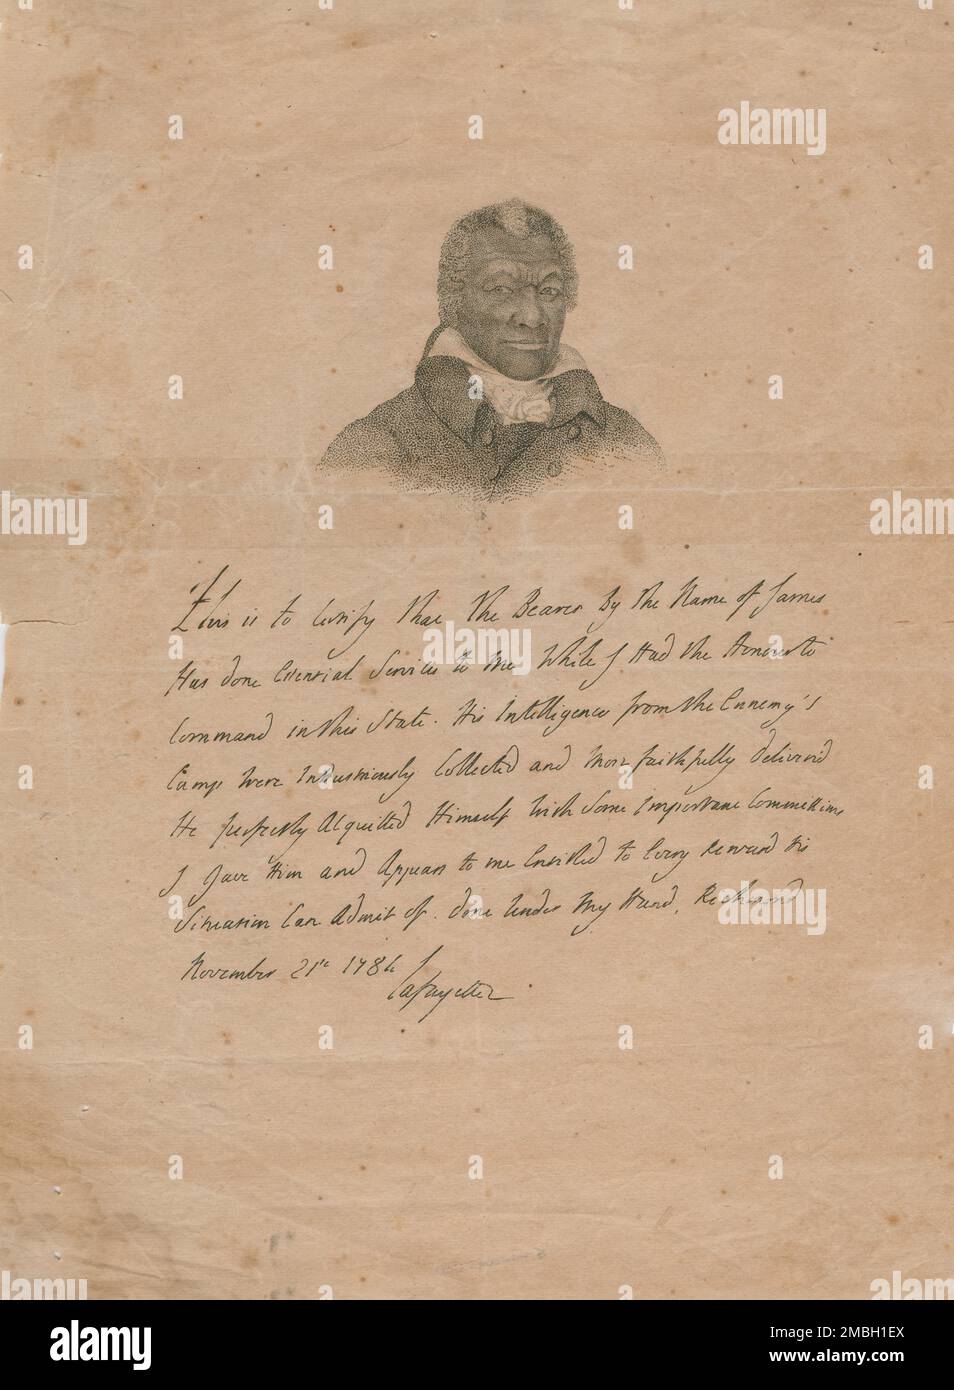 alamy
This is to Certify that the Bearer By the Name of James
Has done Essential Services to Me While I Had the Honour to
Command in this State. His Intelligences from the Ennemy's
Camp were Industriously Collected and More faithfully deliver'd
He perfectly Acquitted Himself with Some Important Commissions
I Gave Him and Appears to me Entitled to Every Reward his
Situation Can Admit of. Done Under My Hand, Richmond
November 21st 1784
Lafayette
alamy
Image ID: 2MBH1EX
www.alamy.com